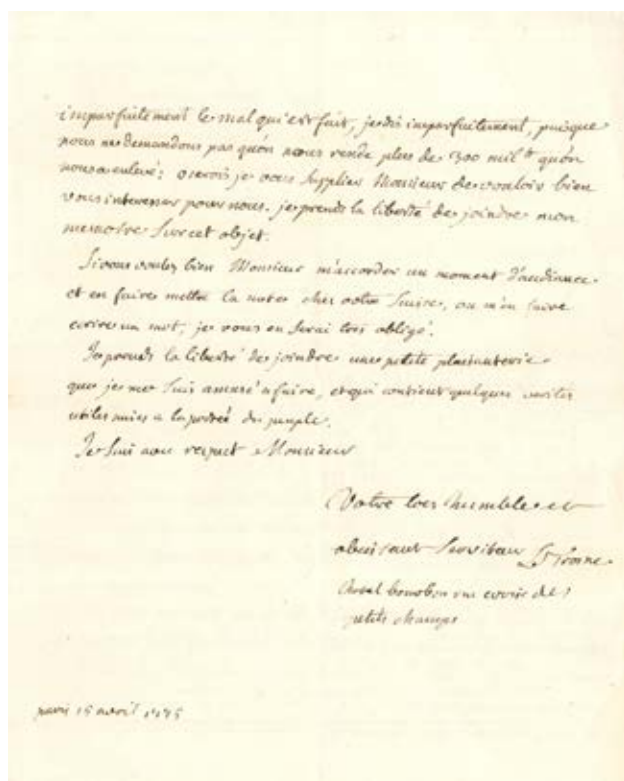 imparfaitement le mal qui est fait, je dis imparfaitement, puisque
nous ne demandons pas qu'on nous rende plus de 300 mil tt qu'on
nous a enlevé; oserois je vous supplier Monsieur de vouloir bien
vous interesser pour nous. je prends la liberté de joindre mon
memoire sur cet objet.
Si vous voulez bien Monsieur m'accorder un moment d'audiance
et en faire mettre la note chez votre Suisse, ou m'en faire
ecrire un mot, je vous en serai tres obligé.
Je prends la liberté de joindre une petite plaisanterie
que je me suis amusé a faire, et qui contient quelques verités
utiles mises a la portée du peuple.
Je suis avec respect Monsieur
Votre tres humble et
obeissant serviteur Le Trosne
hotel bourbon rue croix des
petits champs
paris 15 avril 1775